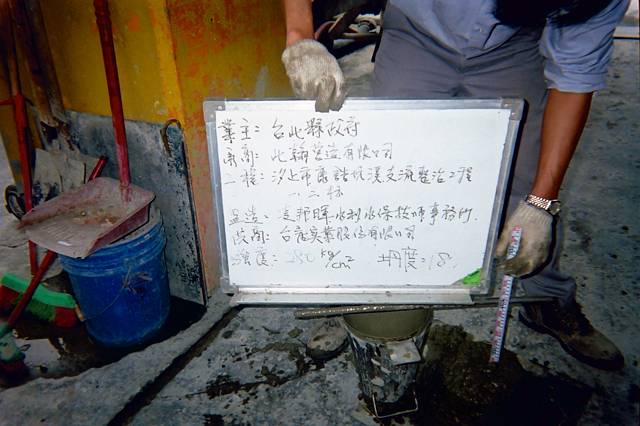 業主: 台北縣政府
承商: 北翰營造有限公司
工程: 汐止市康誥坑溪支流整治工程
二標
監造: 凌邦暉水利水保技師事務所.
政商: 台庭實業股份有限公司
強度: 280 kg/cm² 坍度: 18.